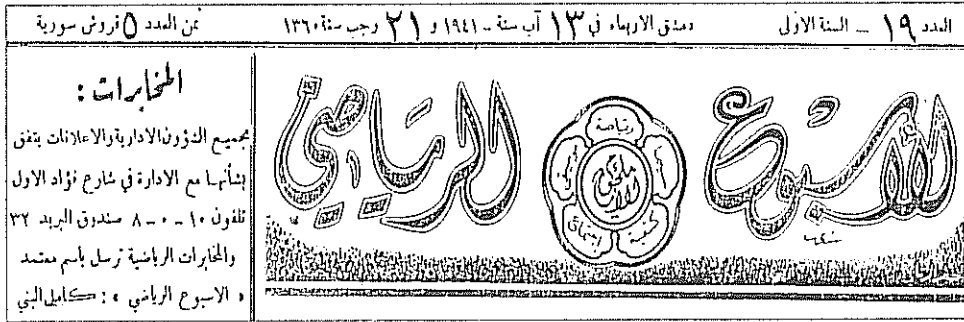 العدد ١٩ ـ السنة الاولى
دمشق الاربعاء في ١٣ آب سنة ـ ١٩٤١ و ٢١ رجب سنة ١٣٦٠
ثمن العدد ٥ قروش سورية
الأسبوع الرياضي
رياضة
كشفية
اجتماعي
المخابرات :
بجميع الشؤون الادارية والاعلانات يتفق
بشأنها مع الادارة في شارع فؤاد الاول
تلفون ١٠ - ٠ - ٨ صندوق البريد ٣٢
والمخابرات الرياضية ترسل بأسم معتمد
« الاسبوع الرياضي » : كامل البني